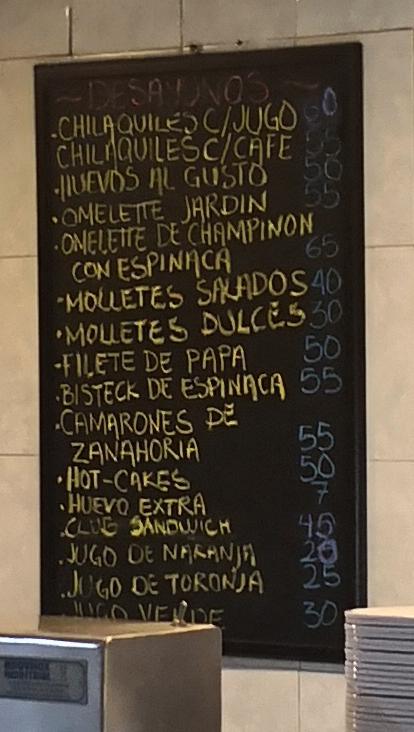 ~ DESAYUNOS ~
·CHILAQUILES C/JUGO 60
CHILAQUILES C/CAFE 55
·HUEVOS AL GUSTO 50
·OMELETTE JARDIN 55
·OMELETTE DE CHAMPINON
CON ESPINACA 65
-MOLLETES SALADOS 40
·MOLLETES DULCES 30
-FILETE DE PAPA 50
·BISTECK DE ESPINACA 55
·CAMARONES DE
ZANAHORIA 55
·HOT-CAKES 50
·HUEVO EXTRA 7
·CLUB SANDWICH 45
·JUGO DE NARANJA
·JUGO DE TORONJA 25
·JUGO VERDE 30